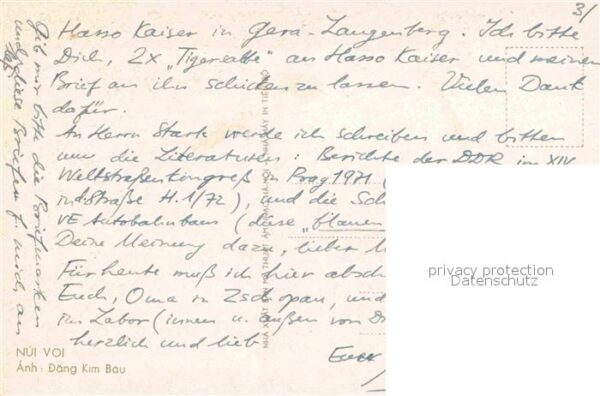 3/
Hasso Kaiser in Gera-Langenberg. Ich bitte
Dich, 2x „Tigerkatte" an Hasso Kaiser und meinen
Brief an ihn schicken zu lassen. Vielen Dank
dafür.
An Herrn Stark werde ich schreiben und bitten
um die Literaturen: Berichte der DDR im XIV.
Weltstraßenkongreß in Prag 1971 (
indstraße H.1/72), und die Sch
VE Autobahnbau (diese „blauen
Deine Meinung dazu, lieber
Für heute muß ich hier absch
Euch, Oma in Zschopau, und
im Labor (innen u. außen von D
herzlich und lieb
Euer
Gib mir bitte die Briefmarken
und diese Briefen f. mich an
NÚI VOI
Ảnh: Đặng Kim Bàu
privacy protection
Datenschutz